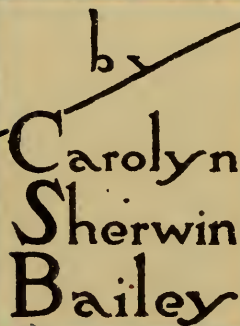 by
Carolyn
Sherwin
Bailey